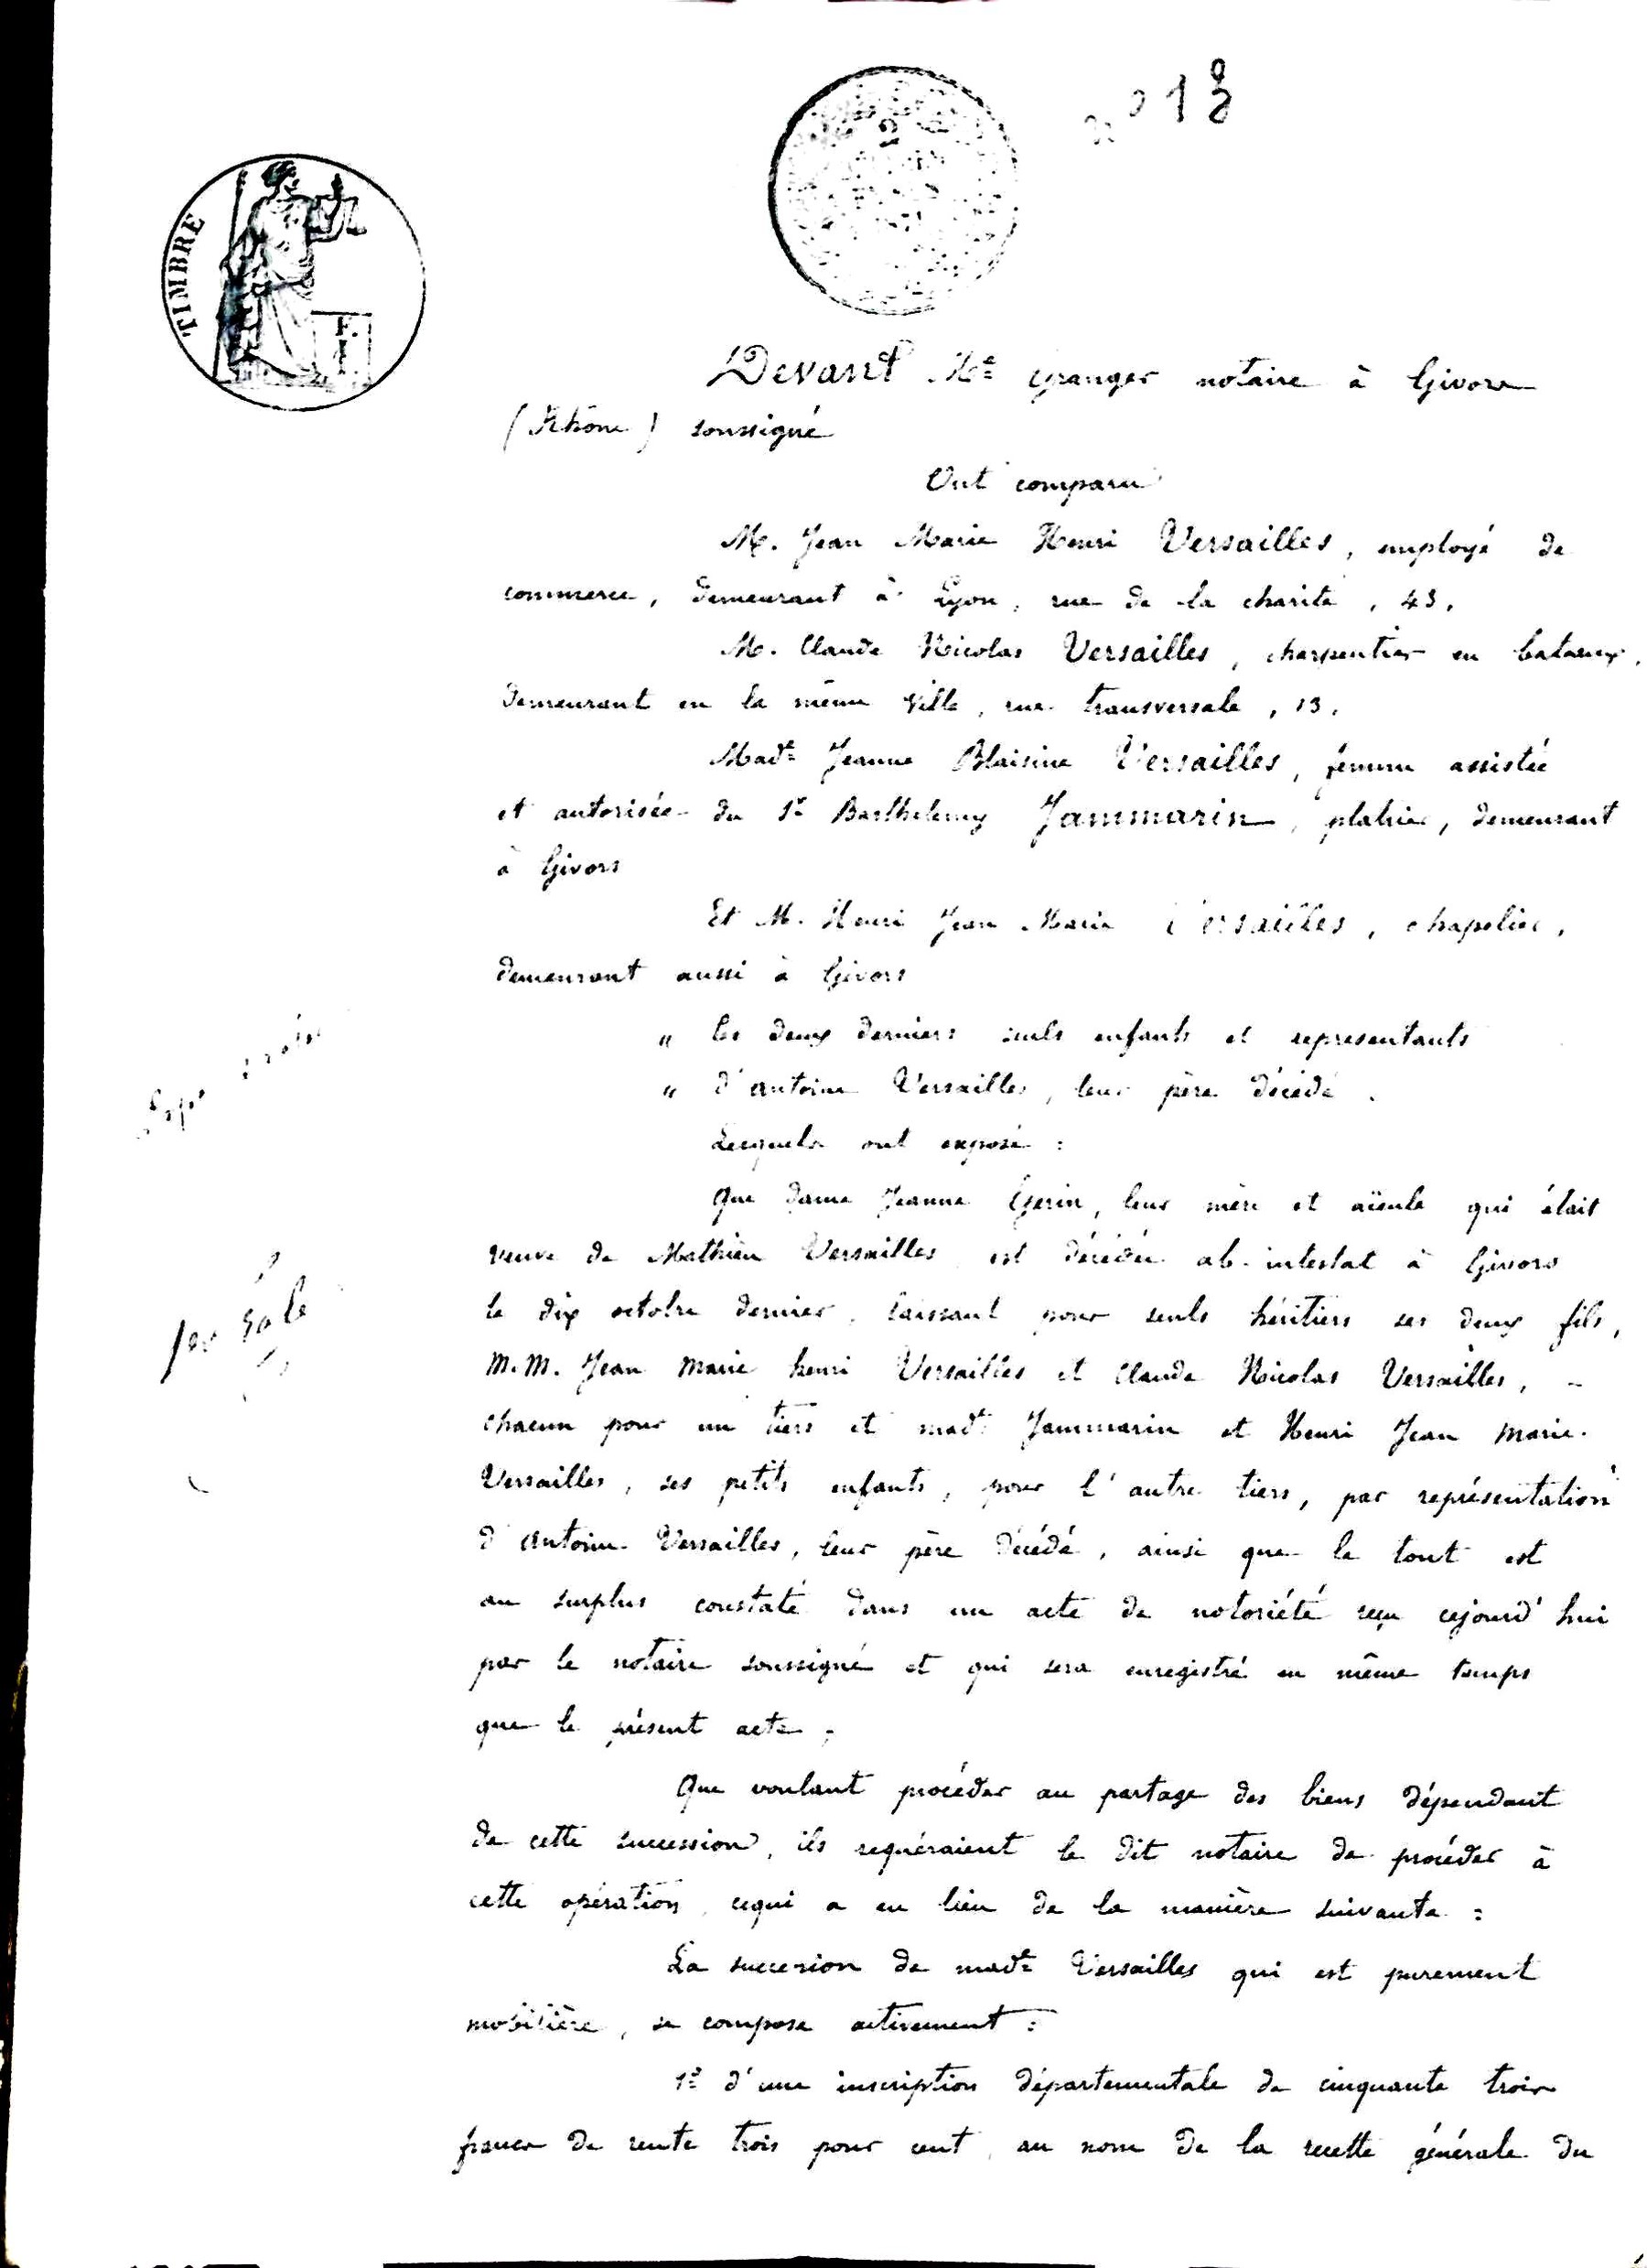 n° 13
TIMBRE
Devant Me Granger notaire à Givors
(Rhône) soussigné
Ont comparu
M. Jean Marie Henri Versailles, employé de
commerce, demeurant à Lyon, rue de la charité, 43.
M. Claude Nicolas Versailles, charpentier en bateaux,
demeurant en la même ville, rue transversale, 13.
Made Jeanne Blaisine Versailles, femme assistée
et autorisée du Sr Barthelemy Jammarin, platrier, demeurant
à Givors
Et M. Henri Jean Marie Versailles, chapelier,
demeurant aussi à Givors
" les deux derniers seuls enfants et représentants
" d'antoine Versailles, leur père décédé.
Lesquels ont exposé :
Que dame Jeanne Gerin, leur mère et aïeule qui était
veuve de Mathieu Versailles est décédée ab-intestat à Givors
le dix octobre dernier, laissant pour seuls héritiers ses deux fils,
M.M. Jean Marie henri Versailles et Claude Nicolas Versailles, -
chacun pour un tiers et made Jammarin et Henri Jean Marie
Versailles, ses petits enfants, pour l'autre tiers, par représentation
d'antoine Versailles, leur père décédé, ainsi que le tout est
au surplus constaté dans un acte de notoriété reçu cejourd'hui
par le notaire soussigné et qui sera enregistré en même temps
que le présent acte ;
Que voulant procéder au partage des biens dépendant
de cette succession, ils requéraient le dit notaire de procéder à
cette opération, cequi a eu lieu de la manière suivante :
La succession de made Versailles qui est purement
mobilière, se compose activement :
1° d'une inscription départementale de cinquante trois
francs de rente trois pour cent, au nom de la recette générale du